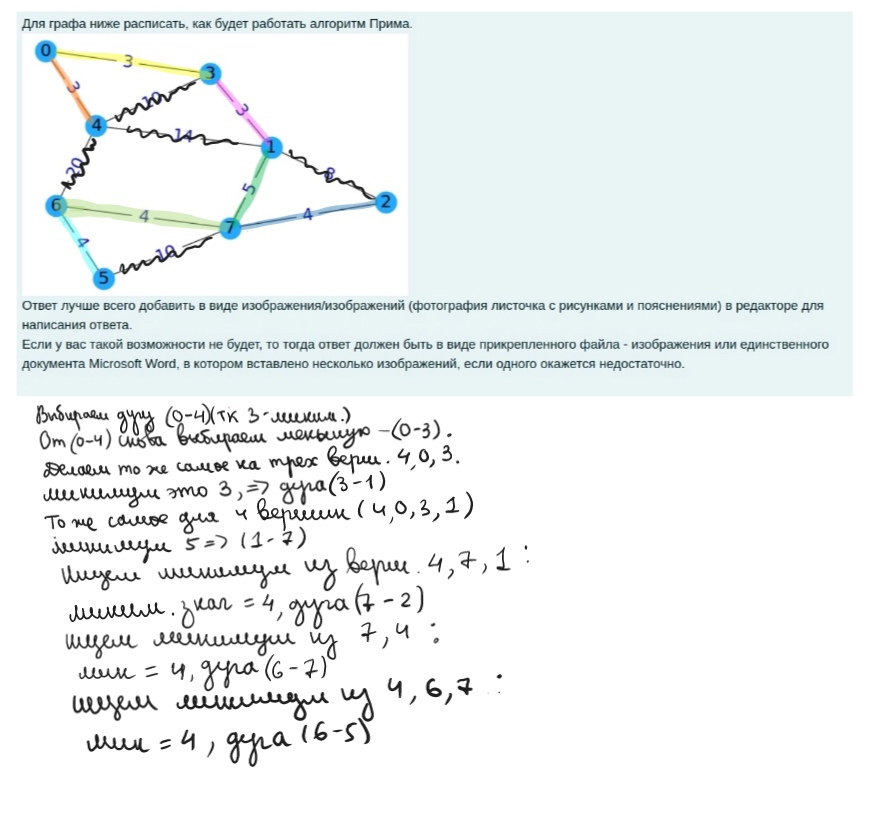 Для графа ниже расписать, как будет работать алгоритм Прима.
0
3
3
3
10
3
4
14
1
20
8
5
2
6
4
4
7
4
10
5
Ответ лучше всего добавить в виде изображения/изображений (фотография листочка с рисунками и пояснениями) в редакторе для
написания ответа.
Если у вас такой возможности не будет, то тогда ответ должен быть в виде прикрепленного файла - изображения или единственного
документа Microsoft Word, в котором вставлено несколько изображений, если одного окажется недостаточно.
Выбираем дугу (0-4)(тк 3-миним.)
От (0-4) снова выбираем меньшую -(0-3).
Делаем то же самое на трех верш. 4,0,3.
минимум это 3, => дуга(3-1)
То же самое для 4 вершин (4,0,3,1)
минимум 5=> (1-7)
Ищем минимум из верш. 4,7,1:
миним. знач = 4, дуга(7-2)
ищем минимум из 7,4:
мин = 4, дуга(6-7)
ищем минимум из 4,6,7:
мин = 4, дуга(6-5)